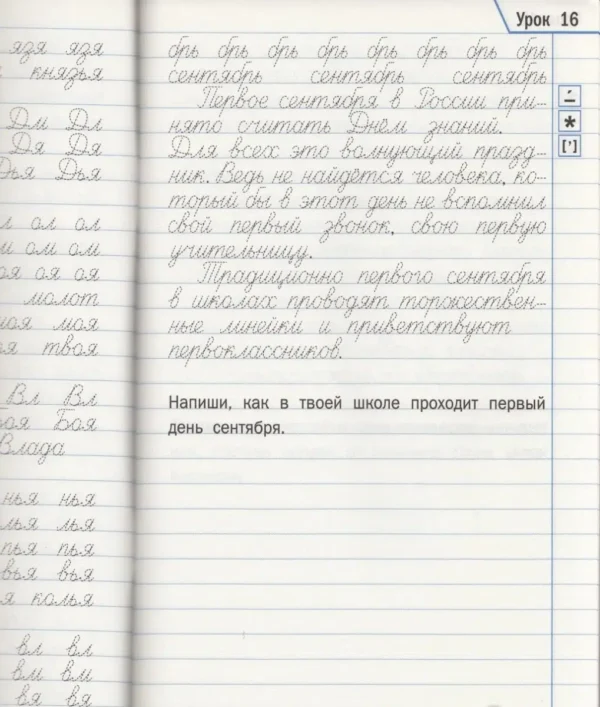 Урок 16
язя язя
князья
Дм Дл
Дя Дя
Дья Дья
л ол ол
м ом ом
оя оя оя
молот
моя моя
я твоя
Вл Вл
Боя
Влада
нья нья
лья лья
пья пья
вья вья
я колья
вл вл
вм вм
вя вя
брь брь брь брь брь брь брь брь
сентябрь сентябрь сентябрь
Первое сентября в России при-
нято считать Днём знаний.
Для всех это волнующий празд-
ник. Ведь не найдётся человека, ко-
торый бы в этот день не вспомнил
свой первый звонок, свою первую
учительницу.
Традиционно первого сентября
в школах проводят торжествен-
ные линейки и приветствуют
первоклассников.
[']
Напиши, как в твоей школе проходит первый
день сентября.